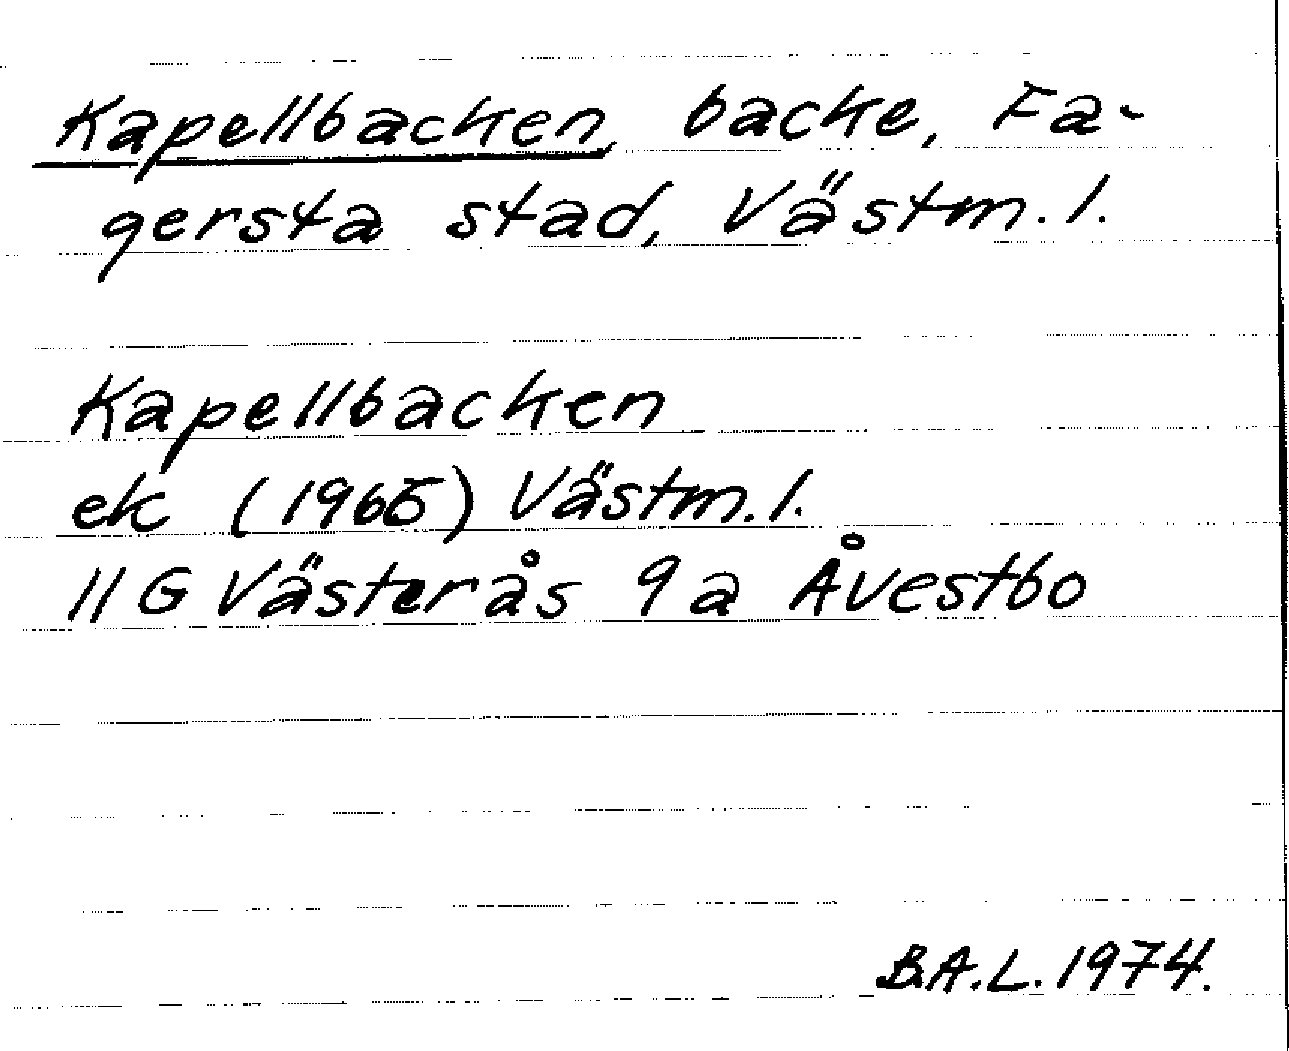 Kapellbacken, backe, Fa-
gersta stad, Västm. l.
Kapellbacken
ek (1965) Västm. l.
11 G Västerås 9 a Åvestbo
B.A.L. 1974.